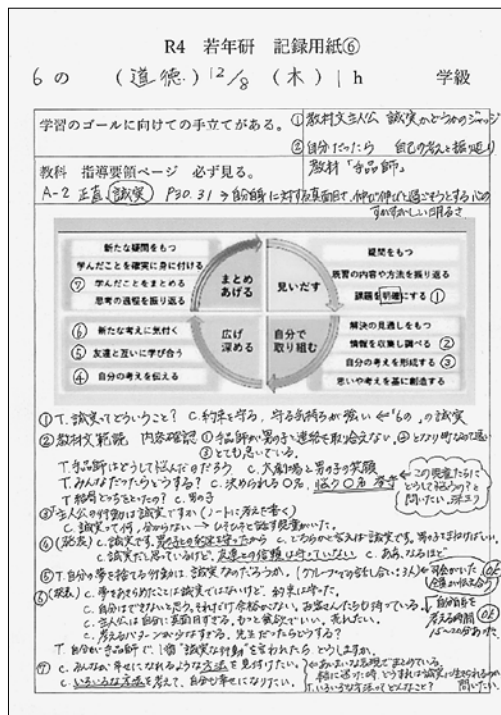 R4 若年研 記録用紙⑥
6の (道徳) 12/8 (木) 1h 学級
学習のゴールに向けての手立てがある。
①教材文主人公 誠実かどうかのジャッジ
②自分だったら 自己の考えと振り返り
教科 指導要領ページ 必ず見る。
教材「手品師」
A-2 正直,誠実 P30.31 →自分自身に対する真面目さ、伸び伸びと過ごそうとする心の
すがすがしい明るさ
新たな疑問をもつ
学んだことを確実に身に付ける
⑦ 学んだことをまとめる
思考の過程を振り返る
まとめあげる
見いだす
疑問をもつ
既習の内容や方法を振り返る
課題を明確にする ①
⑥ 新たな考えに気付く
⑤ 友達と互いに学び合う
④ 自分の考えを伝える
広げ深める
自分で取り組む
解決の見通しをもつ
情報を収集し調べる ②
自分の考えを形成する ③
思いや考えを基に創造する
①T.誠実ってどういうこと? C.約束を守る、守る気持ちが強い ←"6の"の誠実
②教材文範読 内容確認 ①手品師が男の子と連絡を取り合えない。②となり町なので遠い
③とても迷っている。
T.手品師はどうして悩んだのだろう C.大劇場と男の子の笑顔
T.みんなだったらどうする? C.決められる〇名、悩む〇名 挙手
T.結局どっちをとったの? C.男の子
この児童たちにどうして悩むの?と問いたい。
③「主人公の行動は誠実ですか」(ノートに考えを書く)
C.誠実って何、分からない→ひそひそと話す児童がいた。
④(発表) C.誠実です。男の子との約束を守ったから C.どちらかと言えば誠実です。
C.誠実だと思っているけど、友達との信頼は守っていない C.ああ、なるほど
⑤T.自分の夢を捨てる行動は、誠実なのだろうか。(グループでの話し合い:3人)
⑥(発表) C.夢をあきらめたことは誠実ではないけど、約束は守った。
C.自分はできないと思う。それだけ余裕がない。
C.主人公は自分に真面目すぎる。もっと欲が出ていい。売れたい。
C.考えるパターンが少なすぎる。先生だったらどうする?
自分自身を考える時間 OK
15~20分あった
T.自分が手品師で、1番"誠実な行動"を言われたら どうしますか。
⑦ C.みんなが幸せになれるような方法を見付けたい。
C.いろいろな方法を考えて、自分も幸せになりたい。
あいまいな表現でまとめている。
T.いろいろな方法ってどんなこと? 問いたい。